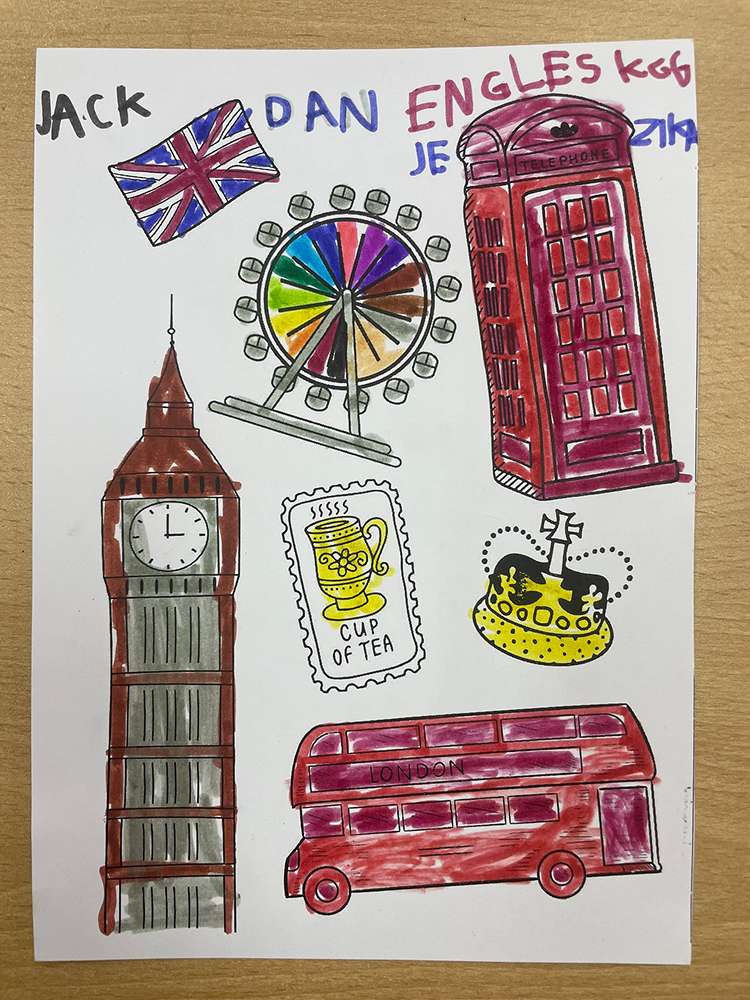 JACK DAN ENGLESKOG
JEZIKA
TELEPHONE
CUP
OF TEA
LONDON